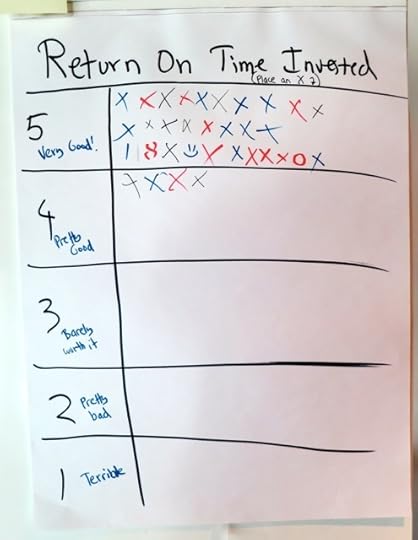 Return On Time Invested
(Place an X ↴)
5
Very Good!
X X X X X X X X X X
X X X X X X X X
| 8 X ت X X X X X O X
4
Pretty
Good
X X X X
3
Barely
worth it
2
Pretty
bad
1
Terrible